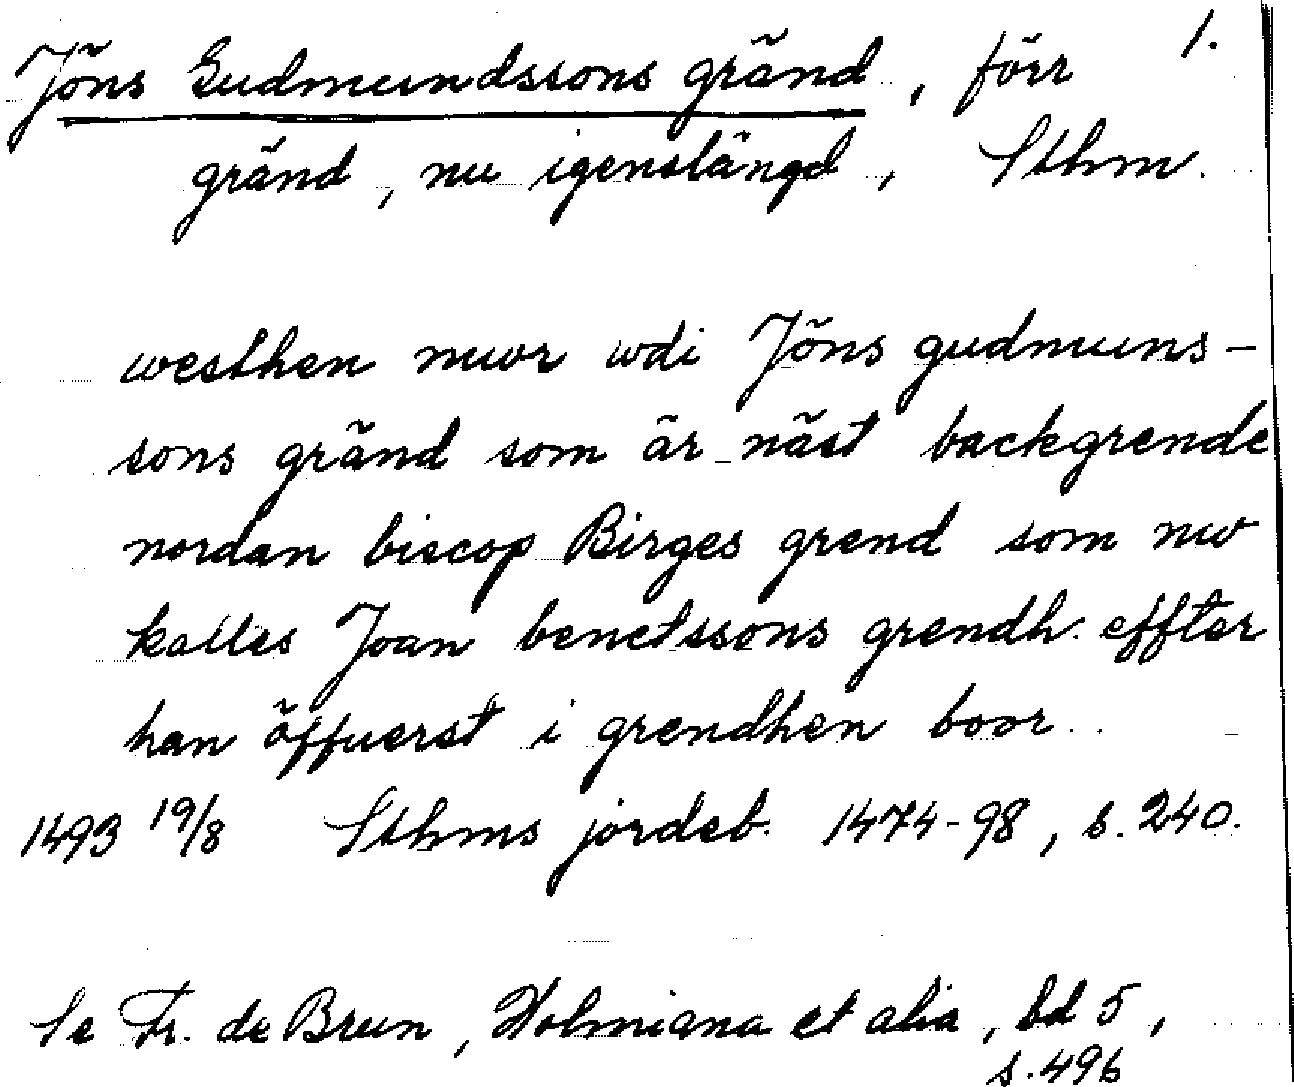 Jöns Gudmundssons gränd, förr 1.
gränd, nu igenslängd, Sthm.
westhen mwr wdi Jöns gudmuns-
sons gränd som är näst backgrende
nordan biscop Birges grend som nw
kalles Joan benctssons grendh effter
han öffuerst i grendhen boor
1493 19/8 Sthms jordeb. 1474-98, s. 240.
Se Fr. de Brun, Holmiana et alia, bd 5,
s. 496